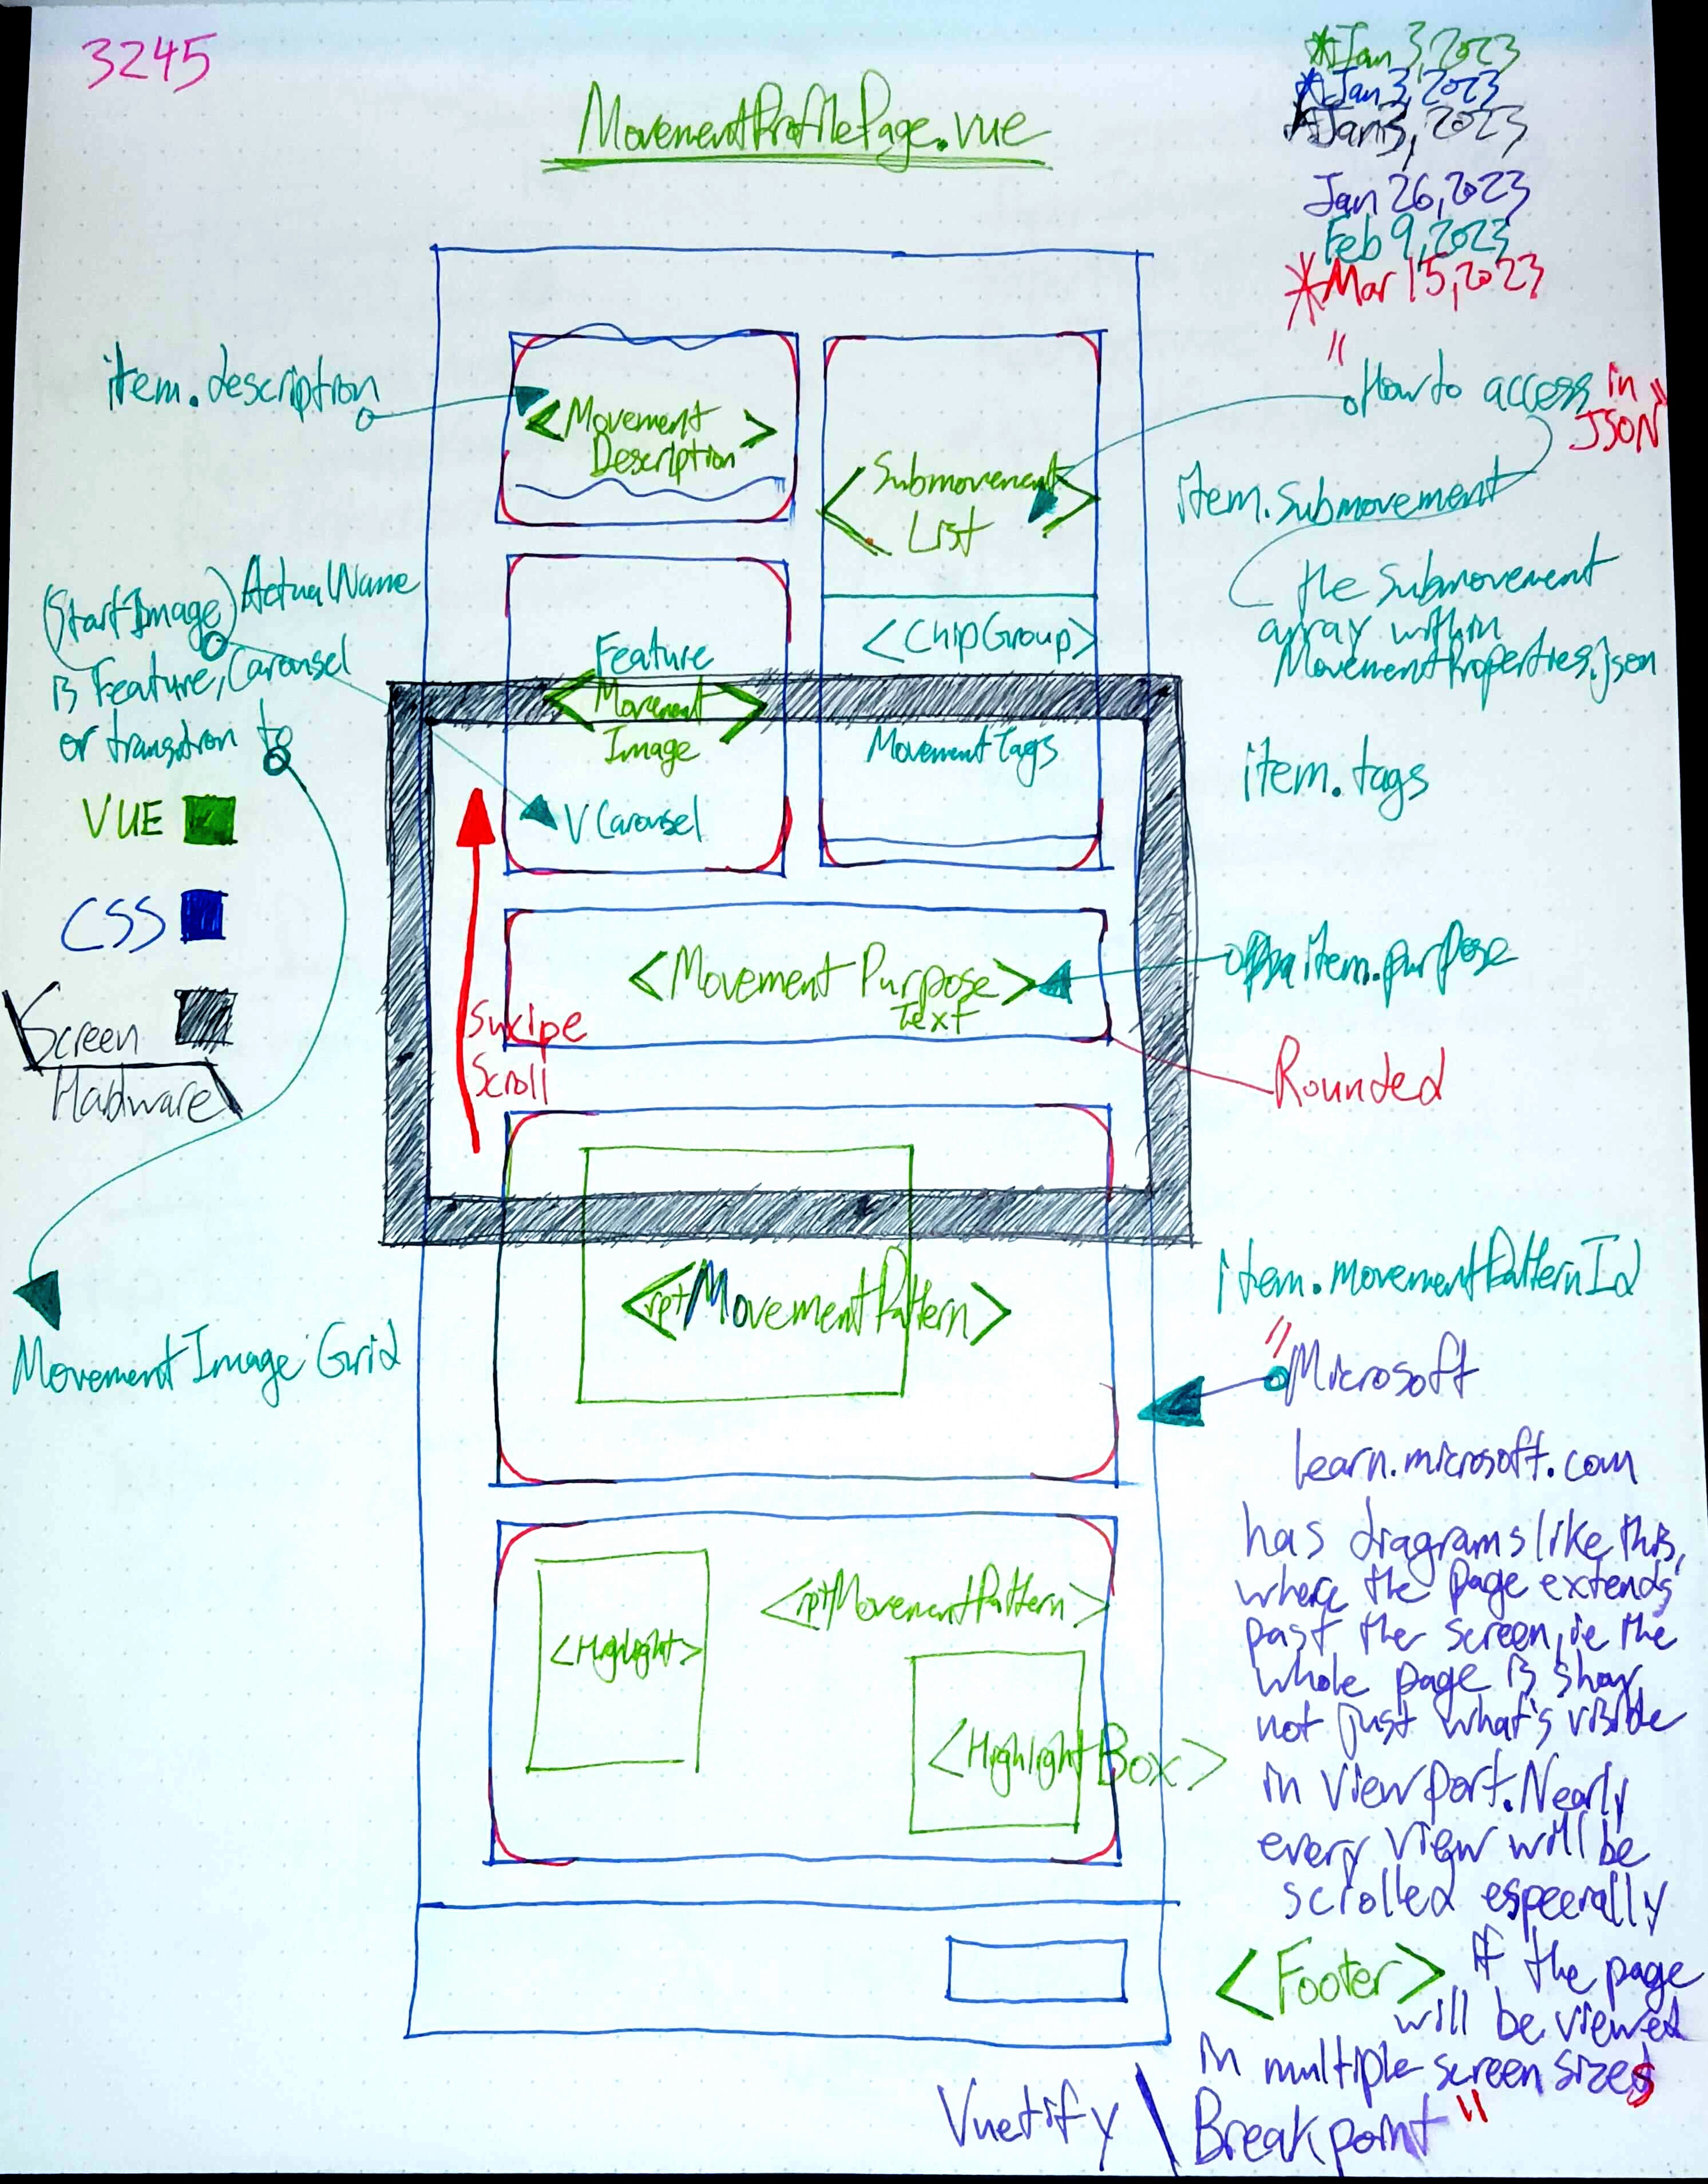 3245
*Jan 3, 2023
*Jan 3, 2023
*Jan 3, 2023
Jan 26, 2023
Feb 9, 2023
*Mar 15, 2023
MovementProfilePage.vue
item.description
<Movement
Description>
<Submovement
List>
"How to access in
JSON"
item.submovement
the submovement
array within
MovementProperties.json
(StartImage) ActualName
is Feature, Carousel
or transition to
MovementImageGrid
Feature
<Movement>
Image
V Carousel
<ChipGroup>
MovementTags
item.tags
VUE
CSS
Screen
Hardware
Swipe
Scroll
<Movement Purpose>
Text
item.purpose
Rounded
<rptMovementPattern>
item.movementPatternId
"Microsoft
learn.microsoft.com
has diagrams like this,
where the page extends
past the screen, ie the
whole page is shown,
not just what's visible
in viewport. Nearly
every view will be
scrolled especially
if the page
will be viewed
in multiple screen sizes"
<Highlight>
<rptMovementPattern>
<HighlightBox>
<Footer>
Vuetify \ Breakpoint